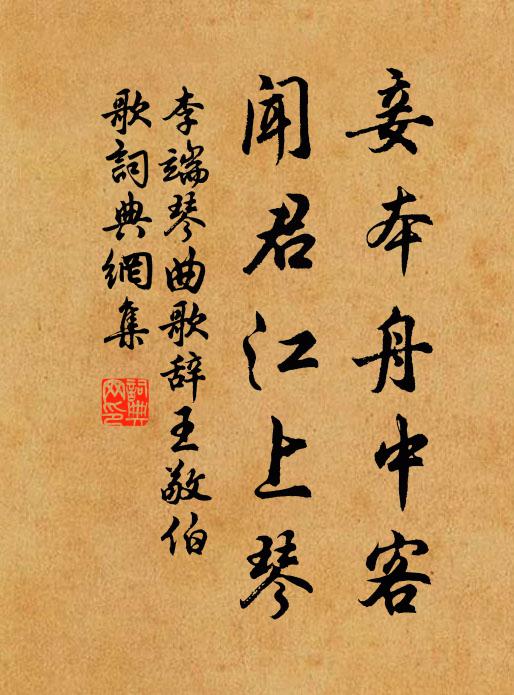 妾本舟中客
闻君江上琴
李端琴曲歌辞王敬伯
歌詞典網集
詞典网印